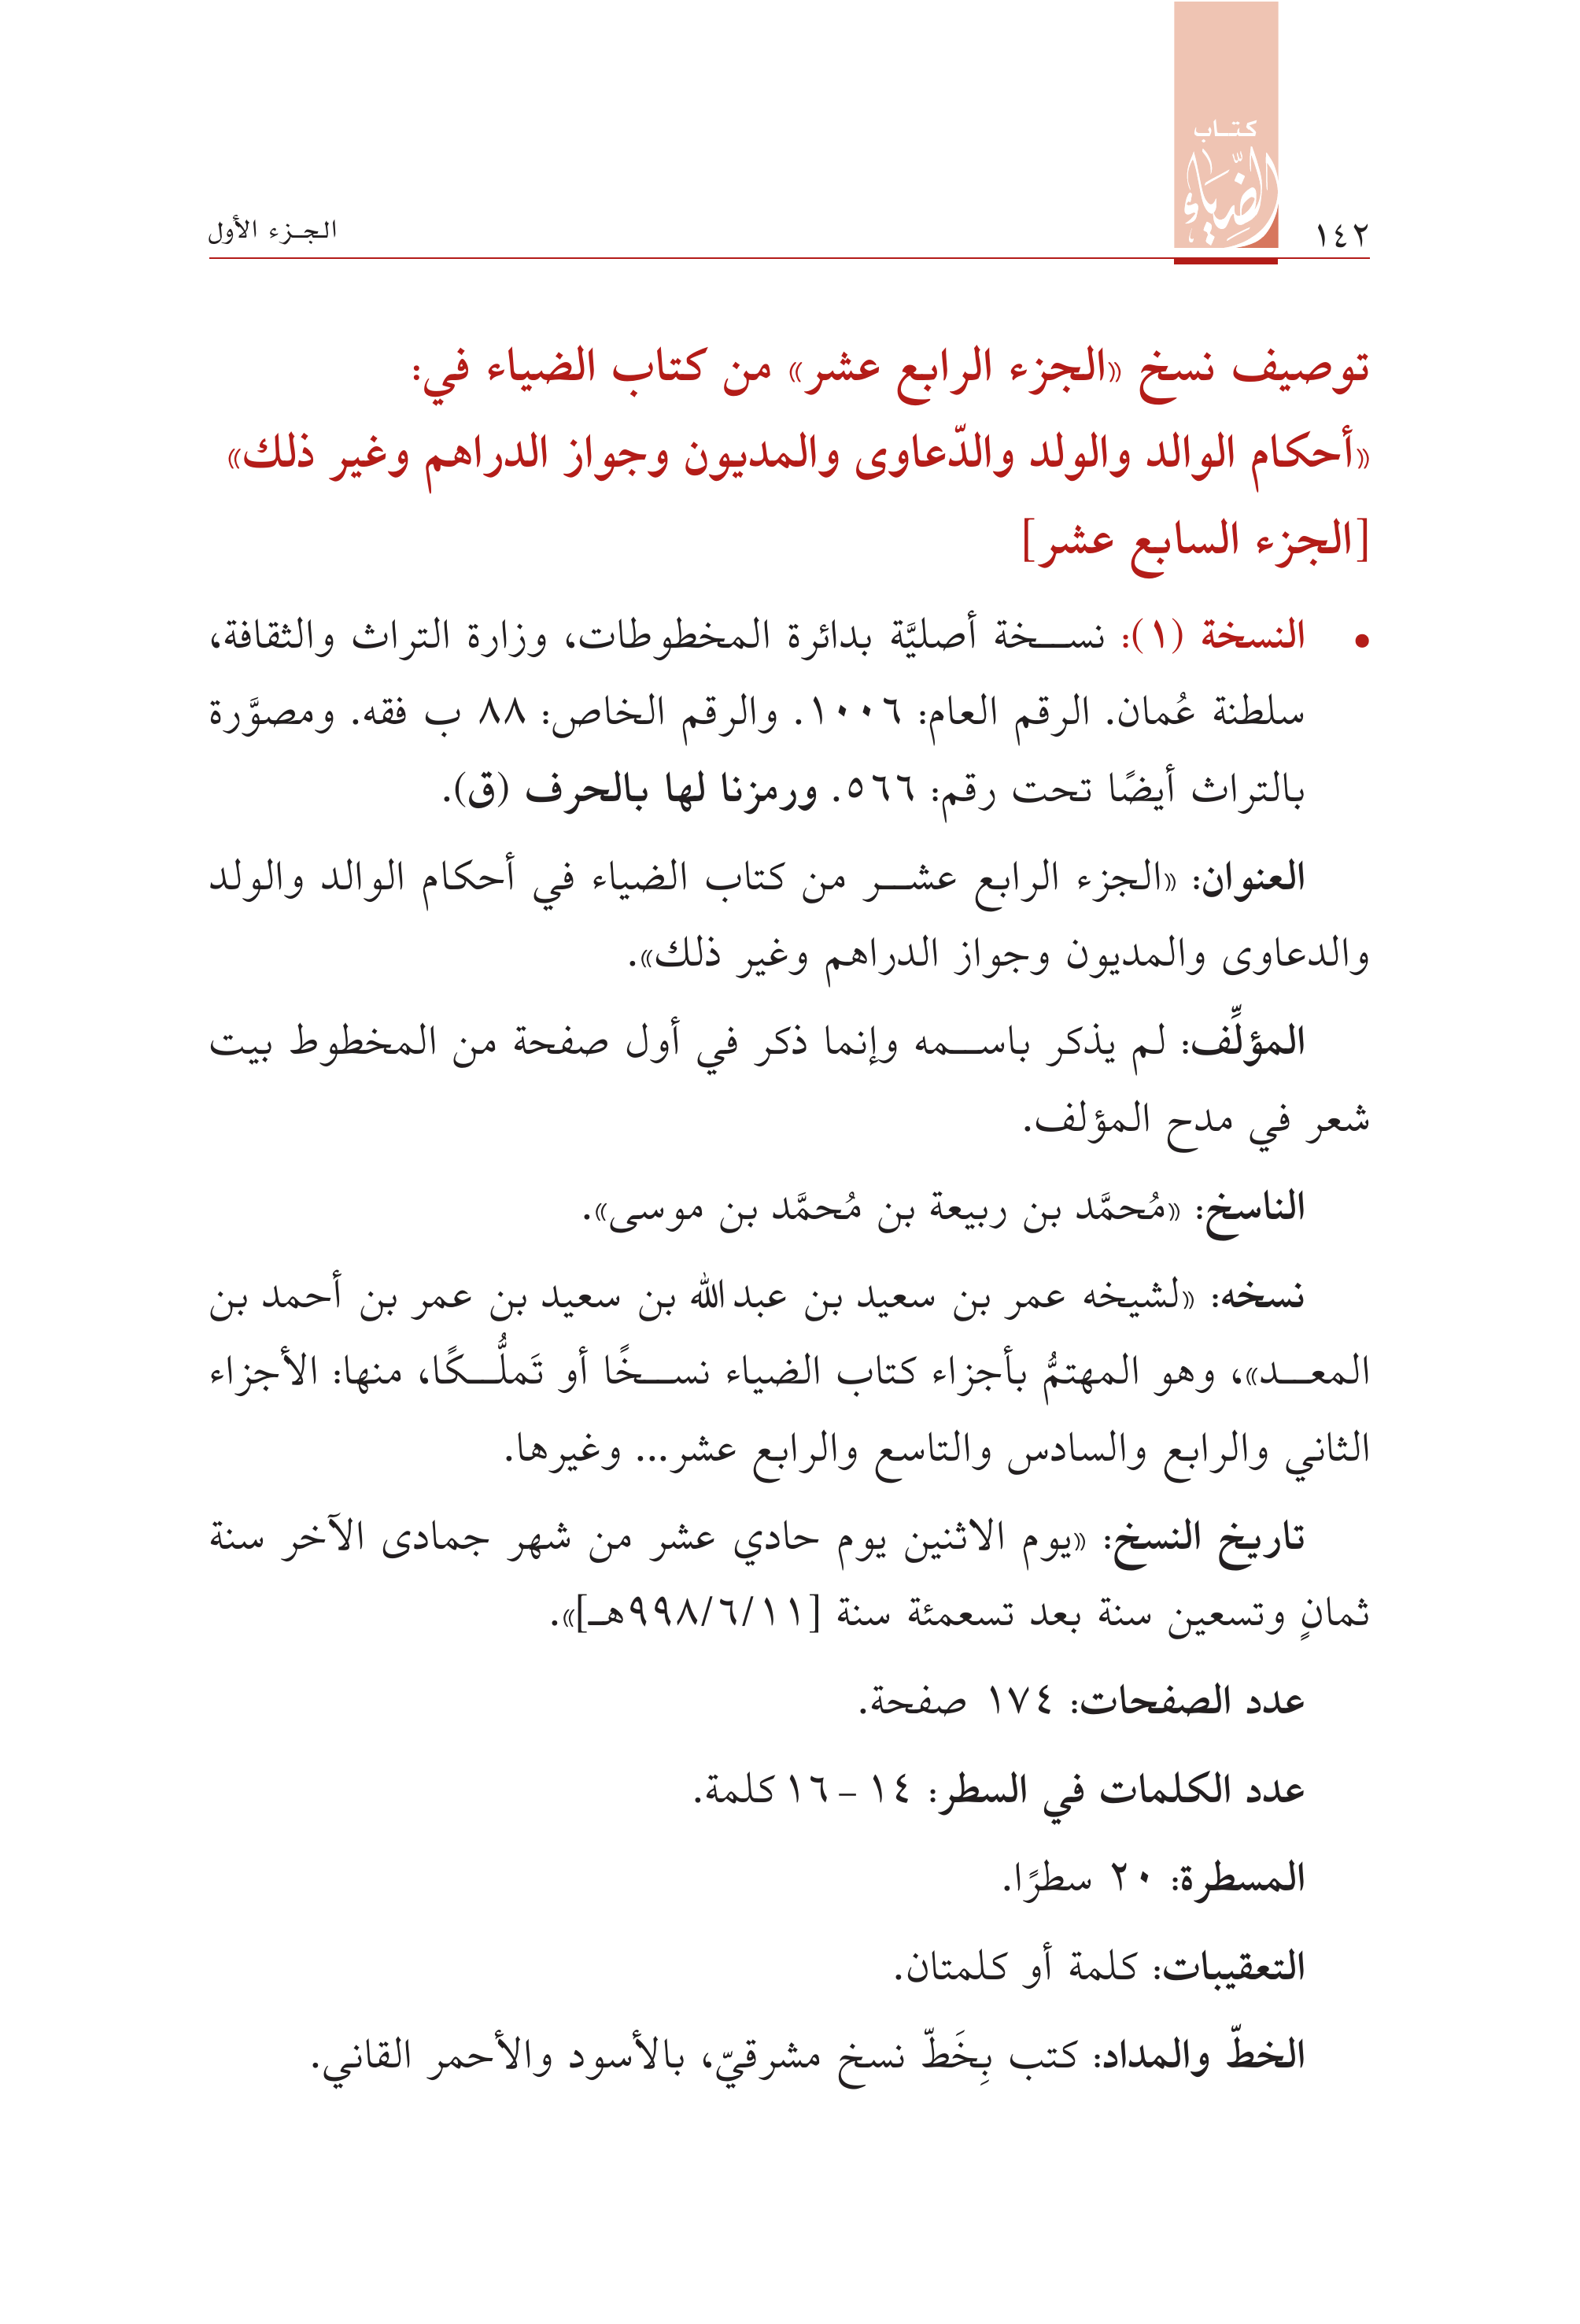 كتاب
الضِّيَاء
١٤٢
الجزء الأول
توصيف نسخ «الجزء الرابع عشر» من كتاب الضياء في:
«أحكام الوالد والولد والدّعاوى والمديون وجواز الدراهم وغير ذلك»
[الجزء السابع عشر]
• النسخة (١): نسخة أصليَّة بدائرة المخطوطات، وزارة التراث والثقافة،
سلطنة عُمان. الرقم العام: ١٠٠٦. والرقم الخاص: ٨٨ ب فقه. ومصوَّرة
بالتراث أيضًا تحت رقم: ٥٦٦. ورمزنا لها بالحرف (ق).
العنوان: «الجزء الرابع عشر من كتاب الضياء في أحكام الوالد والولد
والدعاوى والمديون وجواز الدراهم وغير ذلك».
المؤلِّف: لم يذكر باسمه وإنما ذكر في أول صفحة من المخطوط بيت
شعر في مدح المؤلف.
الناسخ: «مُحمَّد بن ربيعة بن مُحمَّد بن موسى».
نسخه: «لشيخه عمر بن سعيد بن عبدالله بن سعيد بن عمر بن أحمد بن
المعد»، وهو المهتمُّ بأجزاء كتاب الضياء نسخًا أو تَملُّكًا، منها: الأجزاء
الثاني والرابع والسادس والتاسع والرابع عشر... وغيرها.
تاريخ النسخ: «يوم الاثنين يوم حادي عشر من شهر جمادى الآخر سنة
ثمانٍ وتسعين سنة بعد تسعمئة سنة [٩٩٨/٦/١١هـ]».
عدد الصفحات: ١٧٤ صفحة.
عدد الكلمات في السطر: ١٤ - ١٦ كلمة.
المسطرة: ٢٠ سطرًا.
التعقيبات: كلمة أو كلمتان.
الخطّ والمداد: كتب بِخَطّ نسخ مشرقيّ، بالأسود والأحمر القاني.